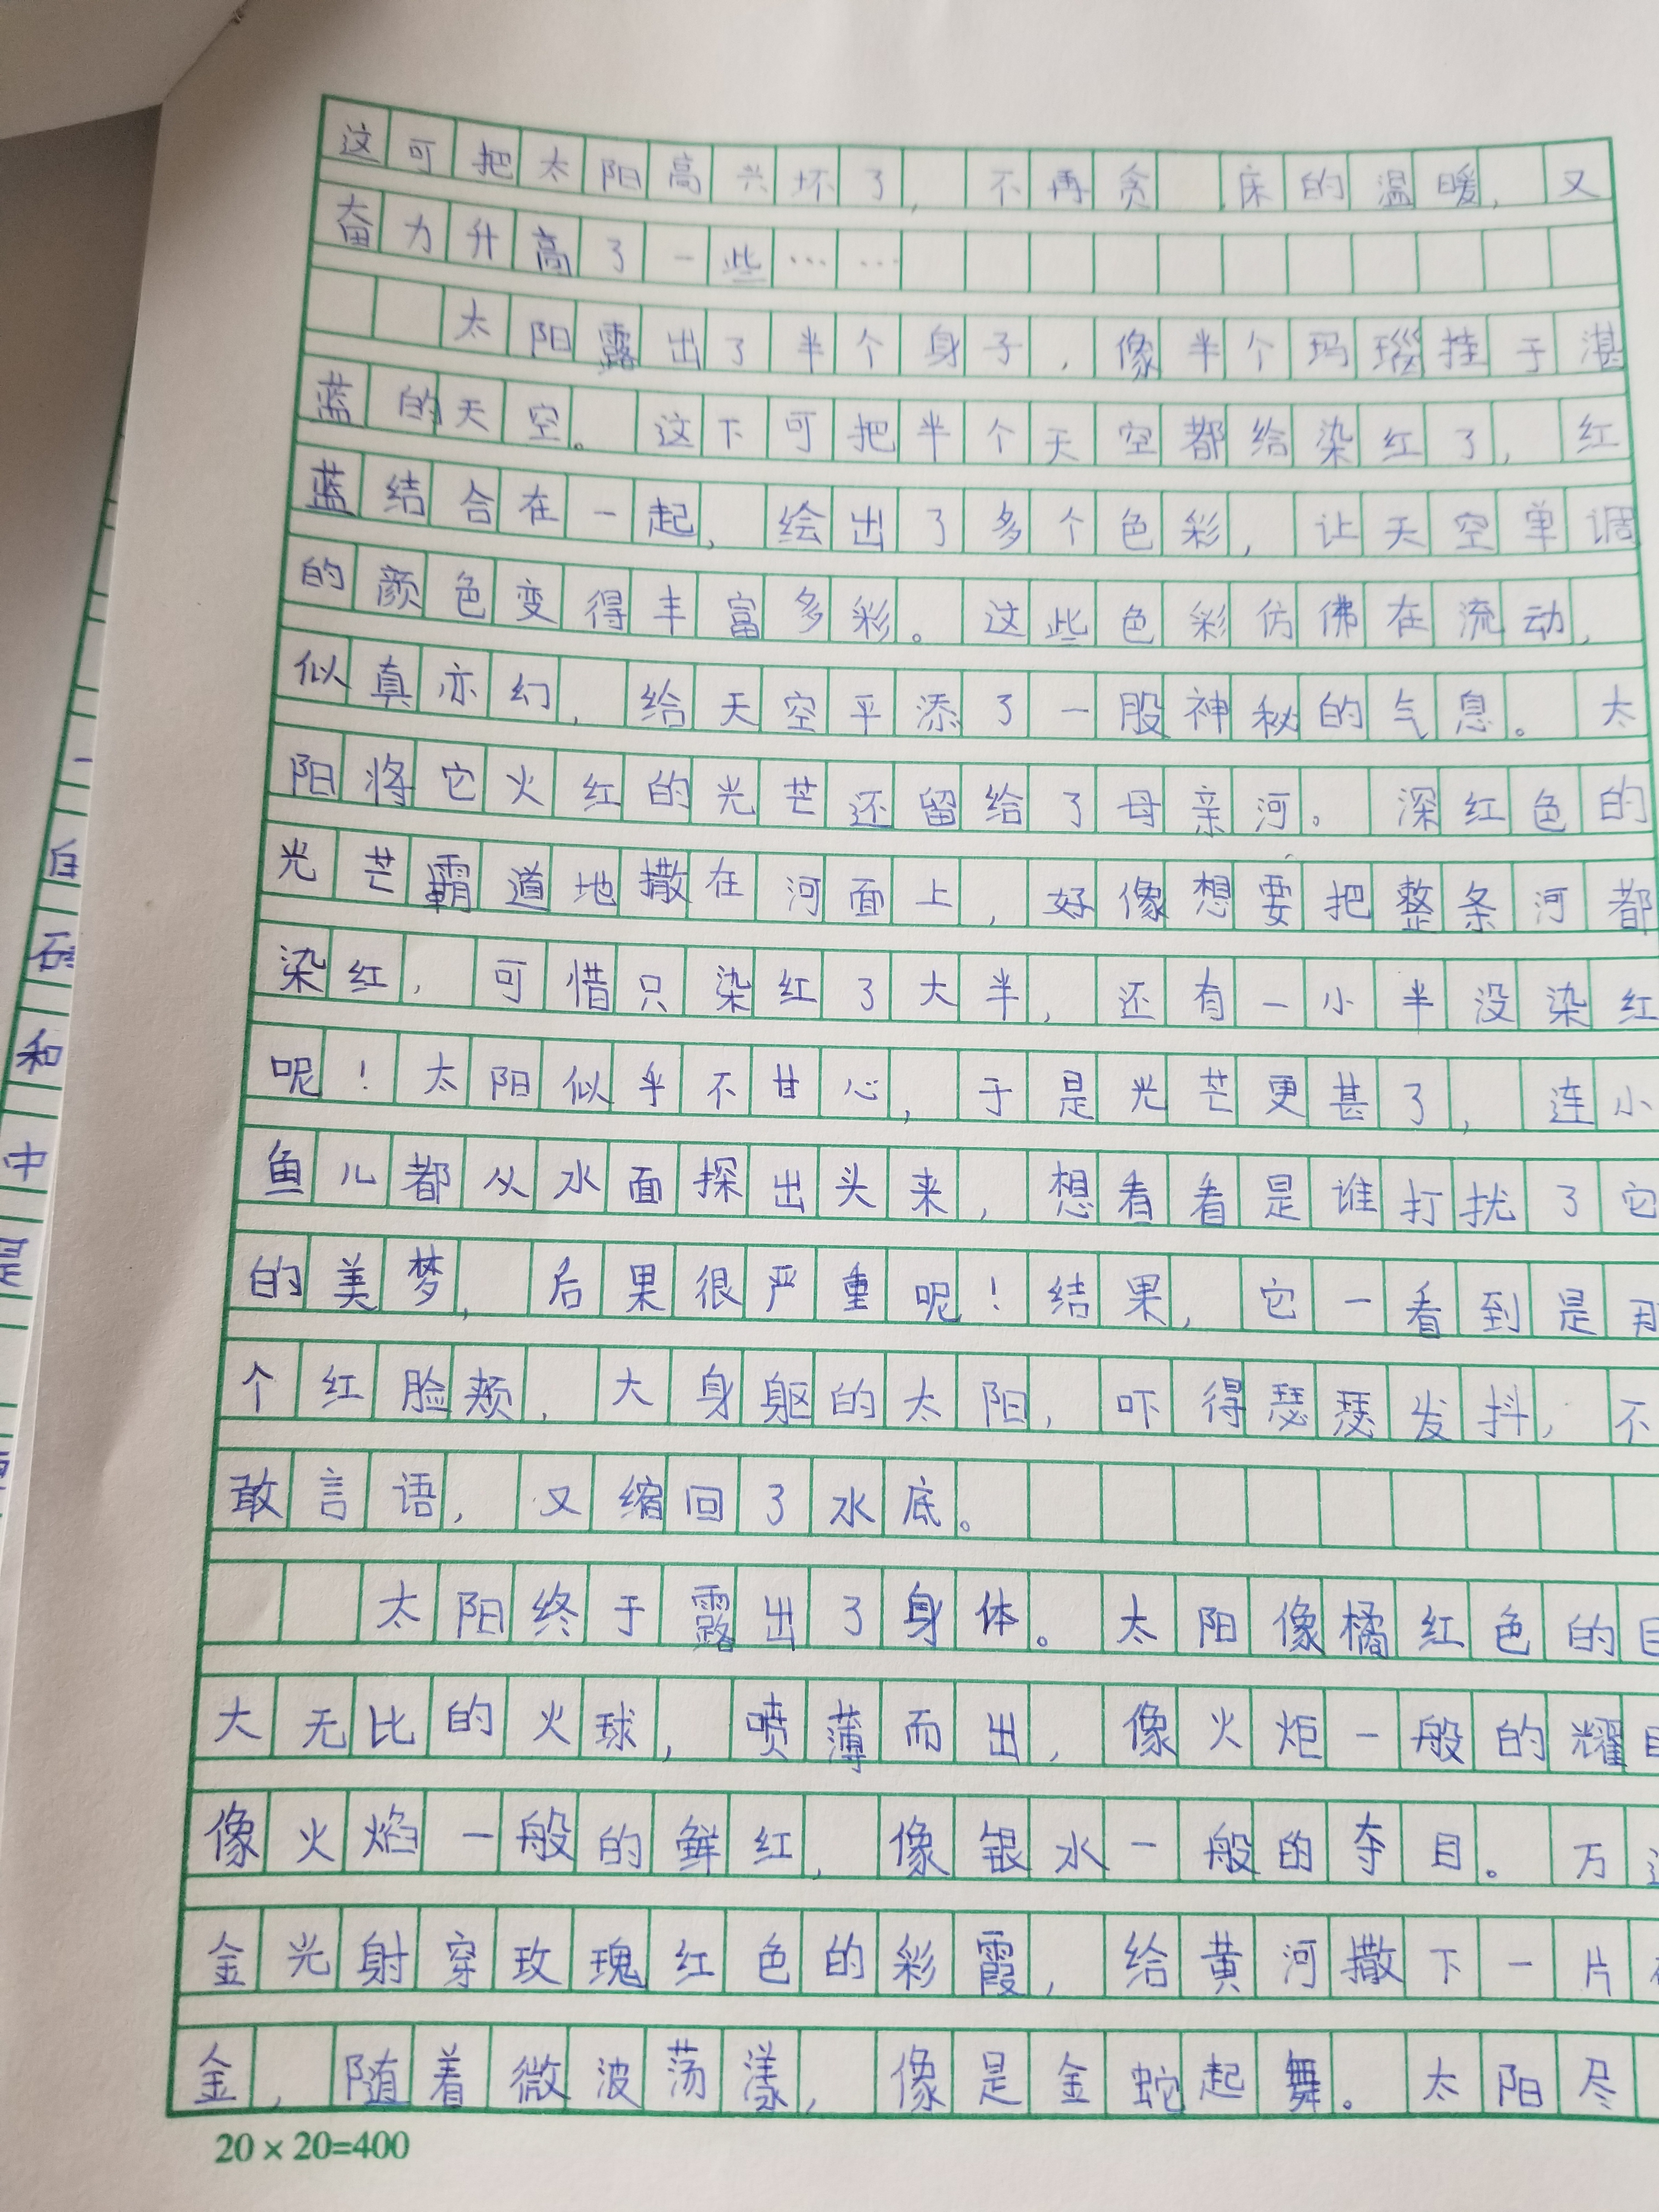 这可把太阳高兴坏了,不再贪床的温暖,又
奋力升高了一些……
太阳露出了半个身子,像半个玛瑙挂于湛
蓝的天空。这下可把半个天空都给染红了,红
蓝结合在一起,绘出了多个色彩,让天空单调
的颜色变得丰富多彩。这些色彩仿佛在流动,
似真亦幻,给天空平添了一股神秘的气息。太
阳将它火红的光芒还留给了母亲河。深红色的
光芒霸道地撒在河面上,好像想要把整条河都
染红,可惜只染红了大半,还有一小半没染红
呢!太阳似乎不甘心,于是光芒更甚了,连小
鱼儿都从水面探出头来,想看看是谁打扰了它
的美梦,后果很严重呢!结果,它一看到是
个红脸颊,大身躯的太阳,吓得瑟瑟发抖,不
敢言语,又缩回了水底。
太阳终于露出了身体。太阳像橘红色的
大无比的火球,喷薄而出,像火炬一般的耀
像火焰一般的鲜红,像银水一般的夺目。万
金光射穿玫瑰红色的彩霞,给黄河撒下一片
金,随着微波荡漾,像是金蛇起舞。太阳尽
20×20=400
自
和
中
是